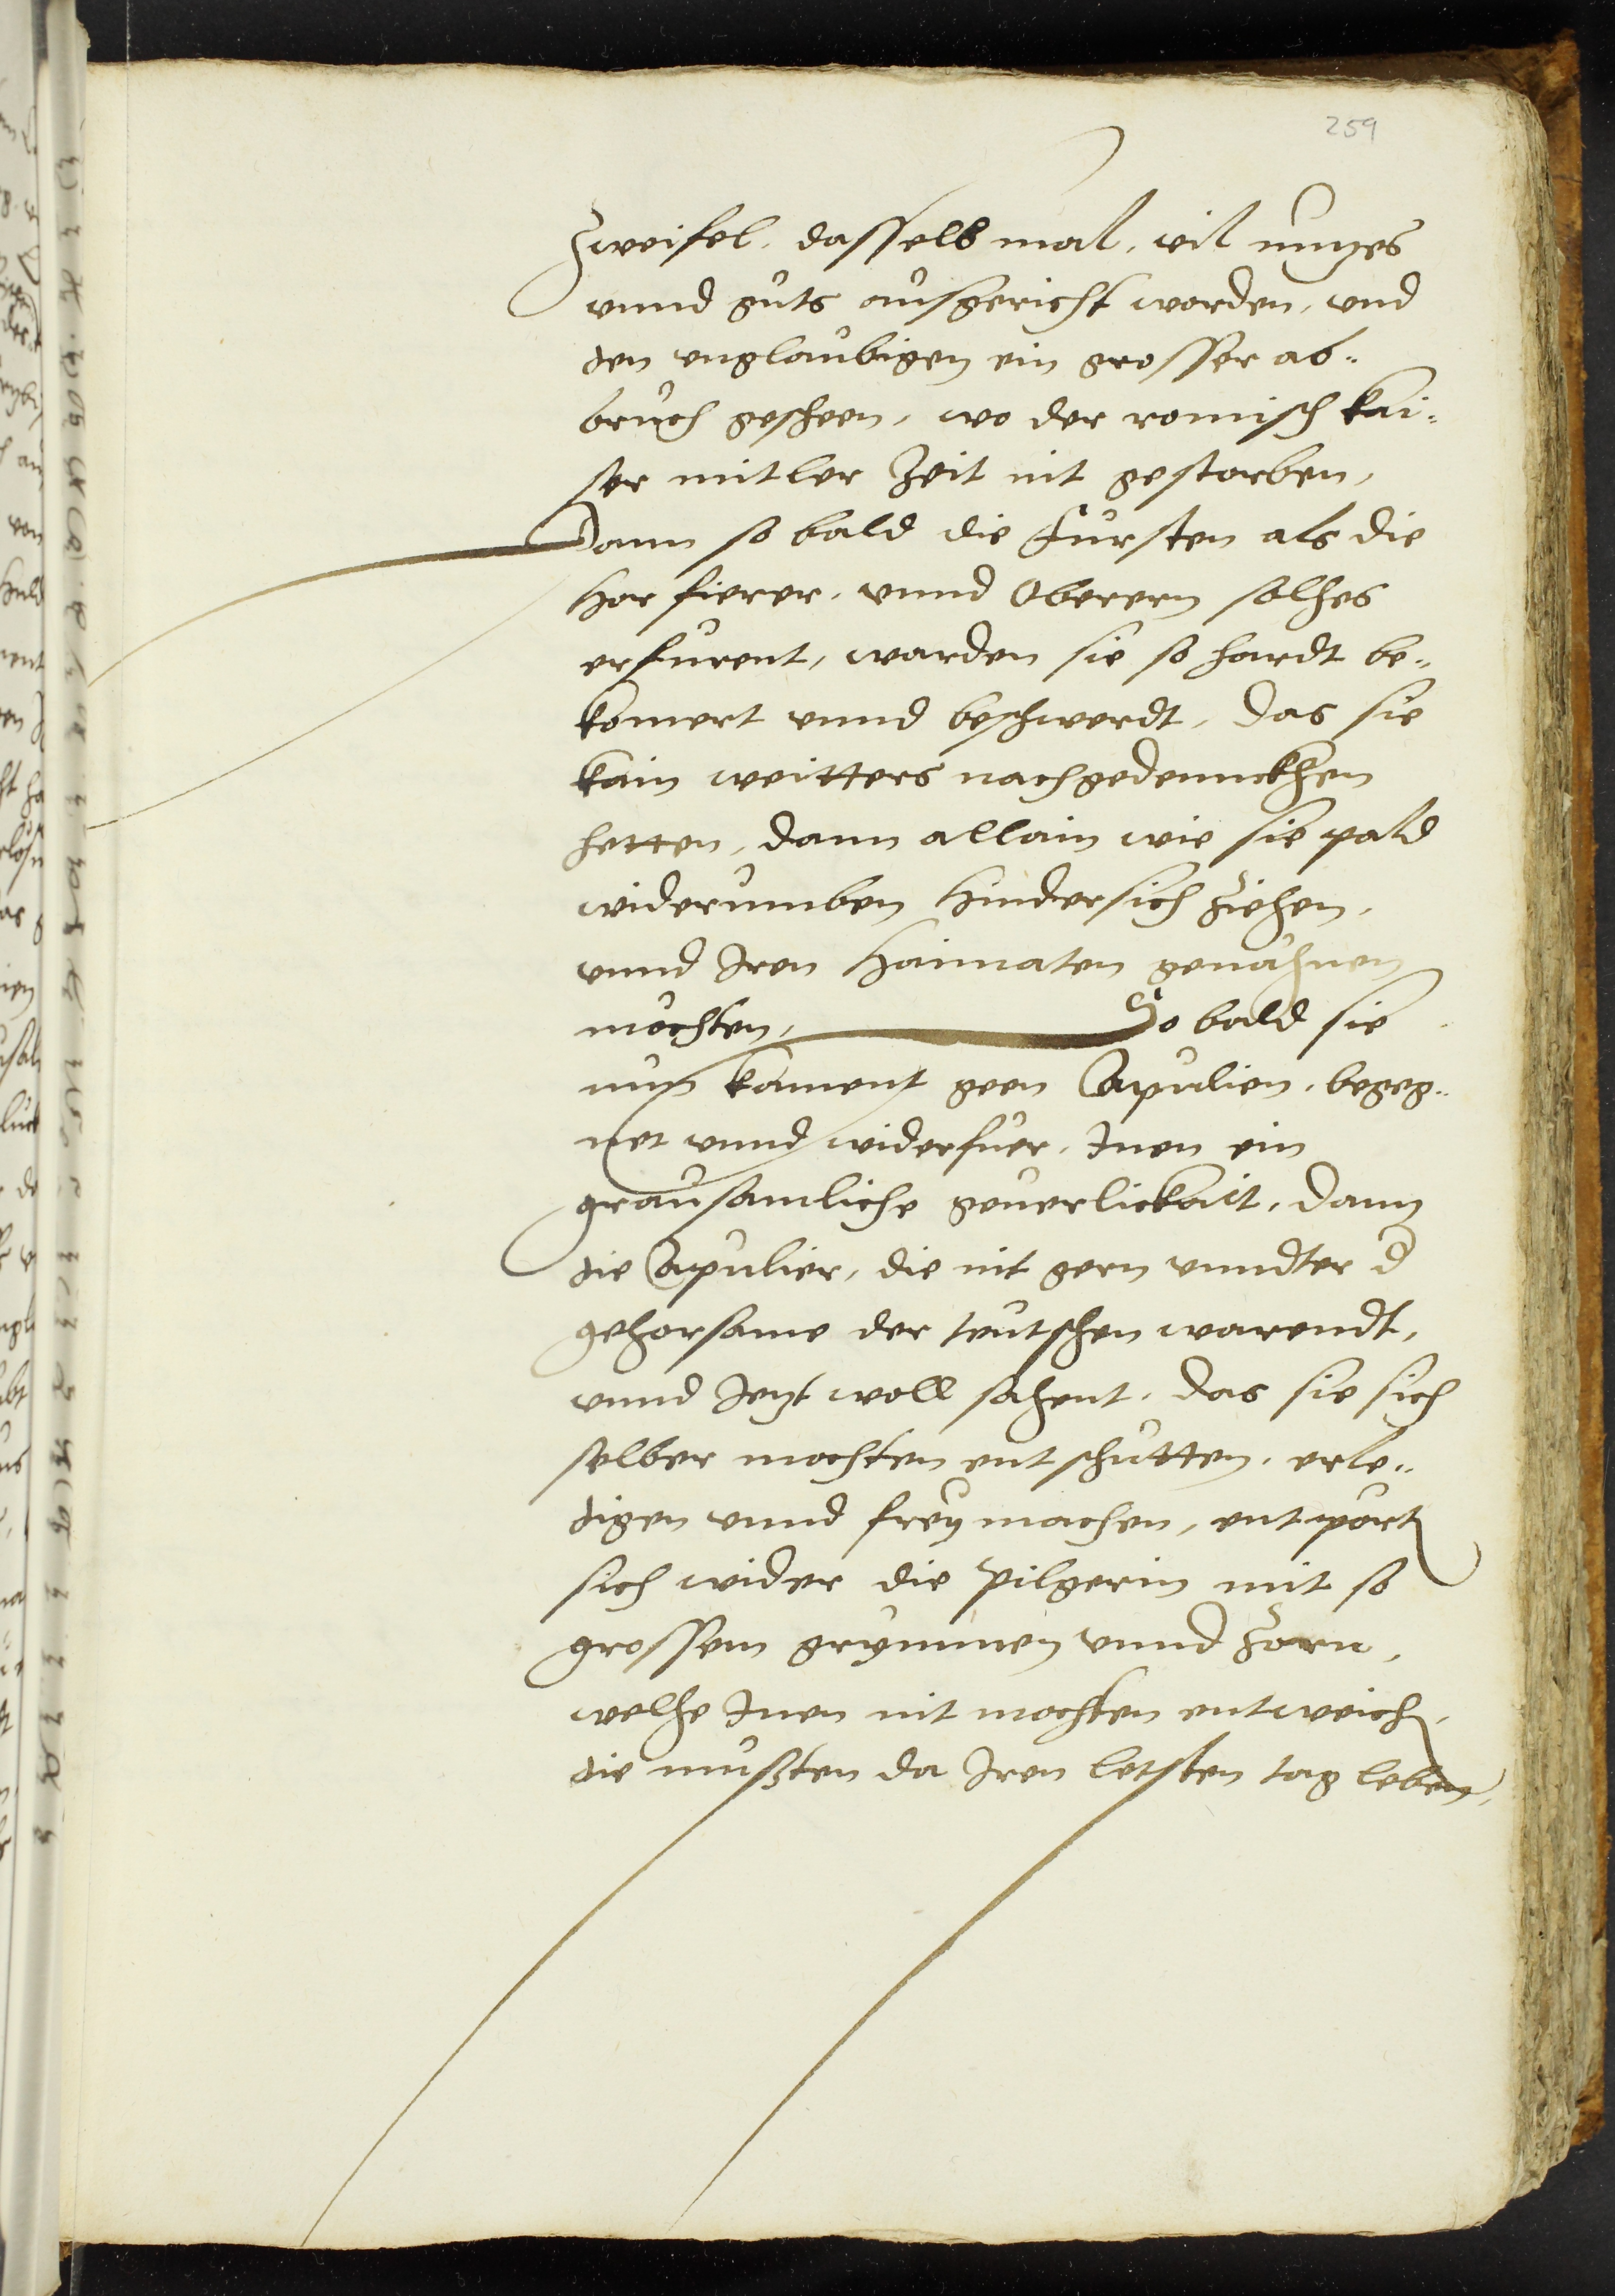 259
Zweifel, dasselb mal, vil nutzes
vnnd guts ausgericht worden, vnd
den vnglaubigen ein grosser ab„
bruch gescheen, wo der romisch kai„
ser mitler Zeit nit gestorben,
Dann so bald die Fursten als die
Hor fierer, vnnd Oberern solhes
erfurent, warden sie so hardt be„
komert vnnd beschwerdt, Das sie
kain weitters nachgedennckhen
hetten, dann allain wie sie pald
widerumben Hindersich Ziehen,
vnnd Iren Haimaten genahnen
mochten, So bald sie
nun kament geen Apulien, begeg„
net vnnd widerfuer, Inen ein
grausamliche geuerlickait, Dann
die Apulier, die nit gern vnndter d
gehorsame der teutschen warendt,
vnnd Jetzt woll sahent, das sie sich
selber mochten entschutten, erle„
digen vnnd frey machen, entport
sich wider die Pilgerin mit so
grossem grymmen vnnd Zorn,
welhe Inen nit mochten entweich,
die mußten da Iren letsten tag leben,